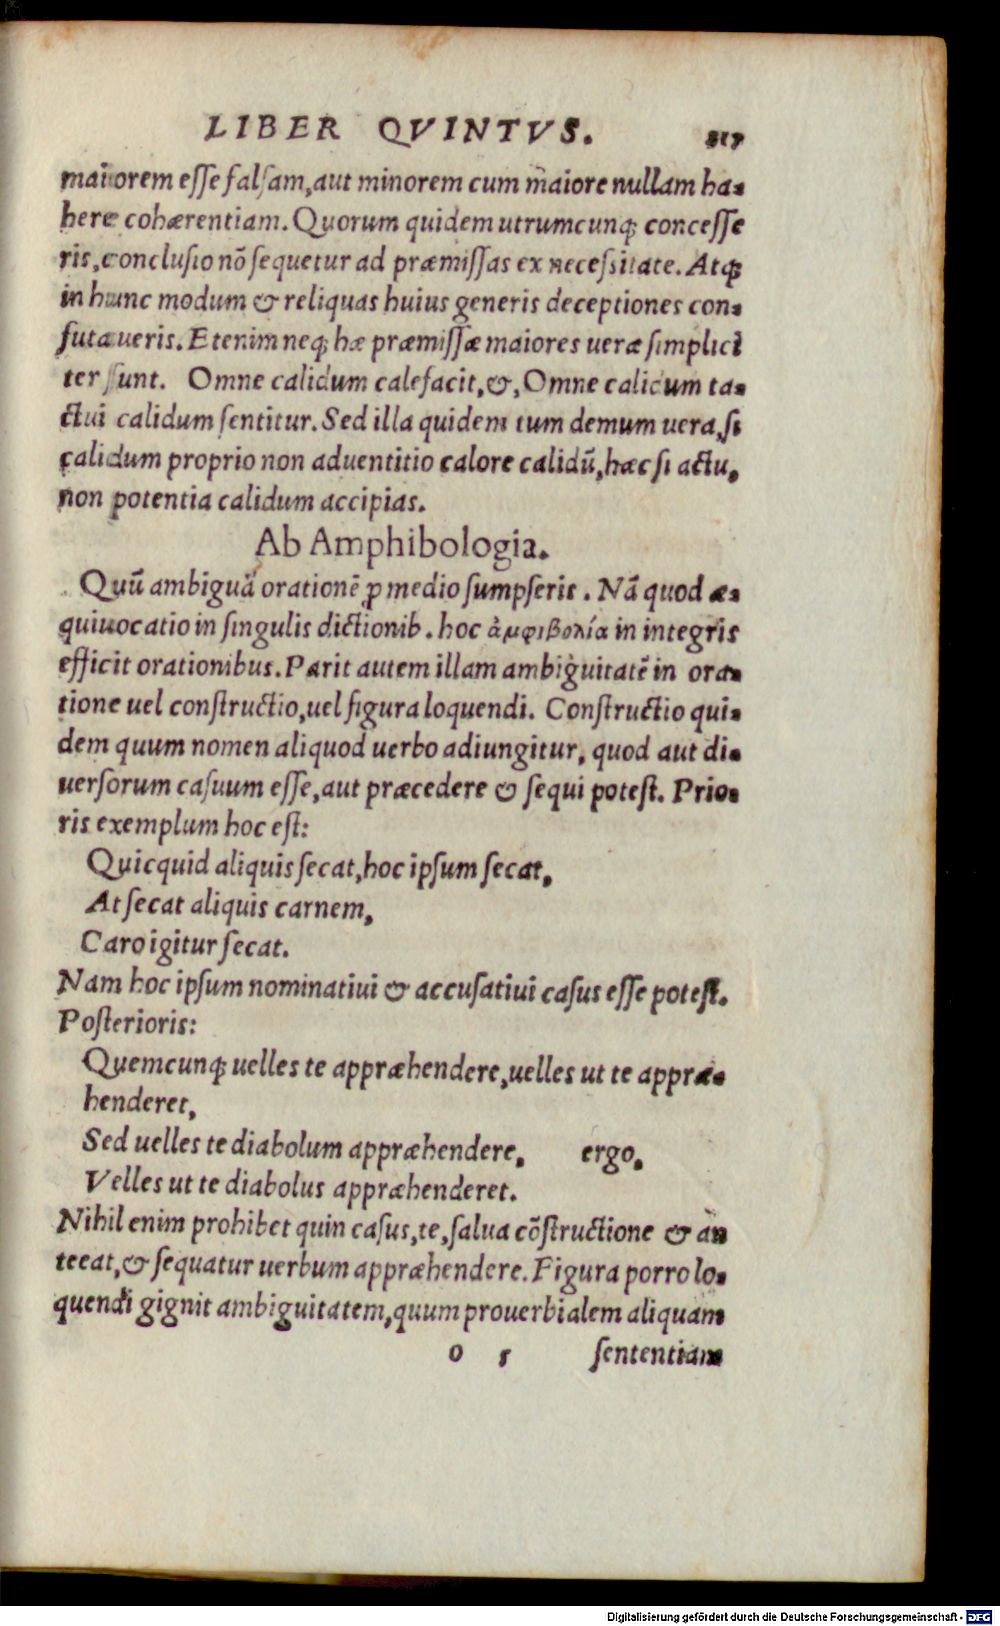 LIBER QVINTVS. 217
maiorem eſſe falſam, aut minorem cum maiore nullam ha-
bere cohærentiam. Quorum quidem utrumcunq; conceſſe
ris, concluſio nō ſequetur ad præmiſſas ex neceſſitate. Atq;
in hunc modum & reliquas huius generis deceptiones con-
futaueris. Etenim neq; hæ præmiſſæ maiores ueræ ſimplici
ter ſunt. Omne calidum calefacit, &, Omne calidum ta-
ctui calidum ſentitur. Sed illa quidem tum demum uera, ſi
calidum proprio non aduentitio calore calidū, hæc ſi actu,
non potentia calidum accipias.
Ab Amphibologia.
Quū ambiguā orationē ꝓ medio ſumpſeris. Nā quod æ-
quiuocatio in ſingulis dictionib. hoc ἀμφιβολία in integris
efficit orationibus. Parit autem illam ambiguitatē in ora-
tione uel conſtructio, uel figura loquendi. Conſtructio qui-
dem quum nomen aliquod uerbo adiungitur, quod aut di-
uerſorum caſuum eſſe, aut præcedere & ſequi poteſt. Prio-
ris exemplum hoc eſt:
Quicquid aliquis ſecat, hoc ipſum ſecat,
At ſecat aliquis carnem,
Caro igitur ſecat.
Nam hoc ipſum nominatiui & accuſatiui caſus eſſe poteſt.
Poſterioris:
Quemcunq; uelles te appræhendere, uelles ut te appræ-
henderet,
Sed uelles te diabolum appræhendere, ergo,
Velles ut te diabolus appræhenderet.
Nihil enim prohibet quin caſus, te, ſalua cōſtructione & an
teeat, & ſequatur uerbum appræhendere. Figura porro lo-
quendi gignit ambiguitatem, quum prouerbialem aliquam
o 5 ſententiam
Digitalisierung gefördert durch die Deutsche Forschungsgemeinschaft - DFG